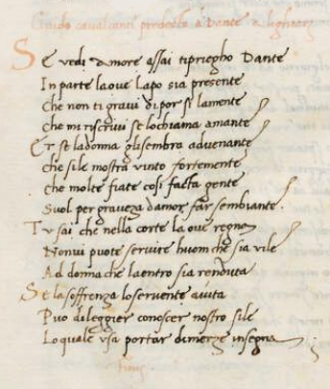 Guido caualcanti predecto a Dante Alighierj
Se vedi Amore assai ti priegho Dante
In parte laoue Lapo sia presente
Che non ti graui di por si lamente
Che mi riscriui se lochiama amante
Et se ladonna gli sembra aduenante
che sile mostra vinto fortemente
che molte fiate così facta gente
Suol per graueza damor far sembiante.
Tu sai che nella corte la oue regna
Non ui puote seruire huom che sia vile
Ad donna che laentro sia renduta
Se la soffrenza lo seruente aiuta
Può di leggier conoscer nostro sile
Lo quale vsa portar di merze insegna